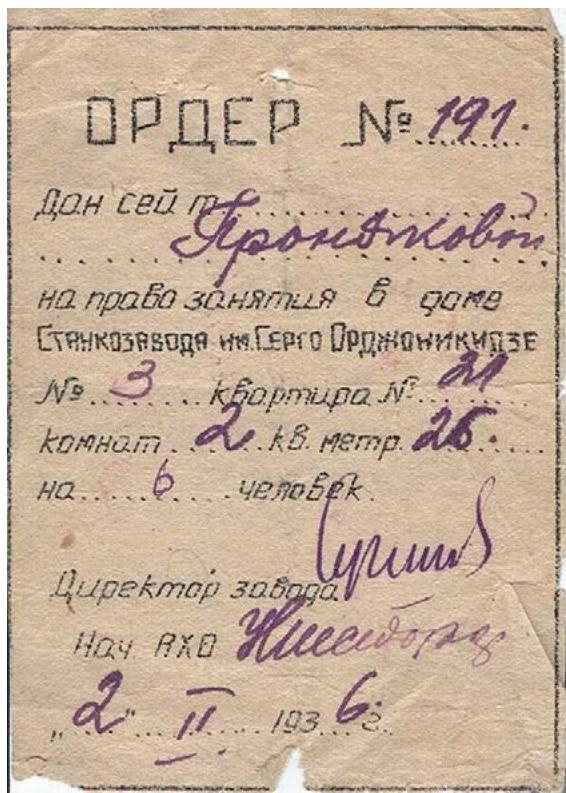 ОРДЕР № 191.
Дан сей т.
на право занятия в доме
Станкозавода им. Серго Орджоникидзе
№ 3 квартира № 21
комнат 2 кв. метр. 26.
на 6 человек.
Директор завода
Нач АХО
„2" II 1936 г.